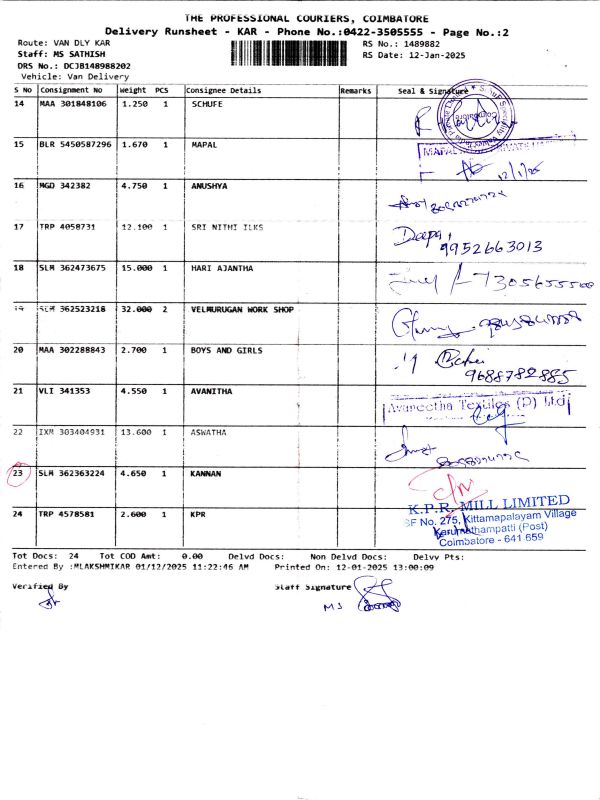 THE PROFESSIONAL COURIERS, COIMBATORE
Delivery Runsheet - KAR - Phone No.:0422-3505555 - Page No.:2
Route: VAN DLY KAR RS No.: 1489882
Staff: MS SATHISH RS Date: 12-Jan-2025
DRS No.: DCJB148988202
Vehicle: Van Delivery
S No Consignment No Weight PCS Consignee Details Remarks Seal & Signature
14 MAA 301848106 1.250 1 SCHUFE
15 BLR 5450587296 1.670 1 MAPAL
12/1/25
16 MGD 342382 4.750 1 ANUSHYA
17 TRP 4058731 12.100 1 SRI NITHI ILKS Deepa,
9952663013
18 SLM 362473675 15.000 1 HARI AJANTHA
19 SLM 362523218 32.000 2 VELMURUGAN WORK SHOP
20 MAA 302288843 2.700 1 BOYS AND GIRLS
9688782885
21 VLI 341353 4.550 1 AVANITHA
Avaneetha Textiles (P) Ltd
22 IXM 303404931 13.600 1 ASWATHA
23 SLM 362363224 4.650 1 KANNAN
24 TRP 4578581 2.600 1 KPR
K.P.R. MILL LIMITED
SF No. 275, Kittamapalayam Village
Karumathampatti (Post)
Coimbatore - 641 659
Tot Docs: 24 Tot COD Amt: 0.00 Delvd Docs: Non Delvd Docs: Delvy Pts:
Entered By :MLAKSHMIKAR 01/12/2025 11:22:46 AM Printed On: 12-01-2025 13:00:09
Verified By Staff Signature
MS